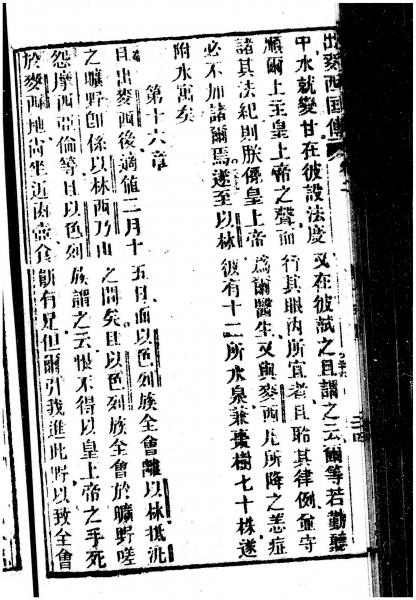 出麥西國傳
中水就變甘在彼設法度又在彼試之且謂之云爾等若勤聽
順爾上主皇上帝之聲而行其眼內所宜者且聆其律例兼守
諸其法紀則朕係皇上帝為爾醫生又與麥西凡所降之恙症
必不加諸爾焉遂至以林彼有十二所水泉兼棗樹七十株遂
附水寓矣
第十六章
且出麥西後適值二月十五日而以色列族全會離以林抵汛
之曠野卽係以林西乃山之間矣且以色列族全會於曠野嗟
怨摩西亞倫等且以色列族謂之云恨不得以皇上帝之手死
於麥西地尚坐近肉壺食餅有足但爾引我進此野以致全會